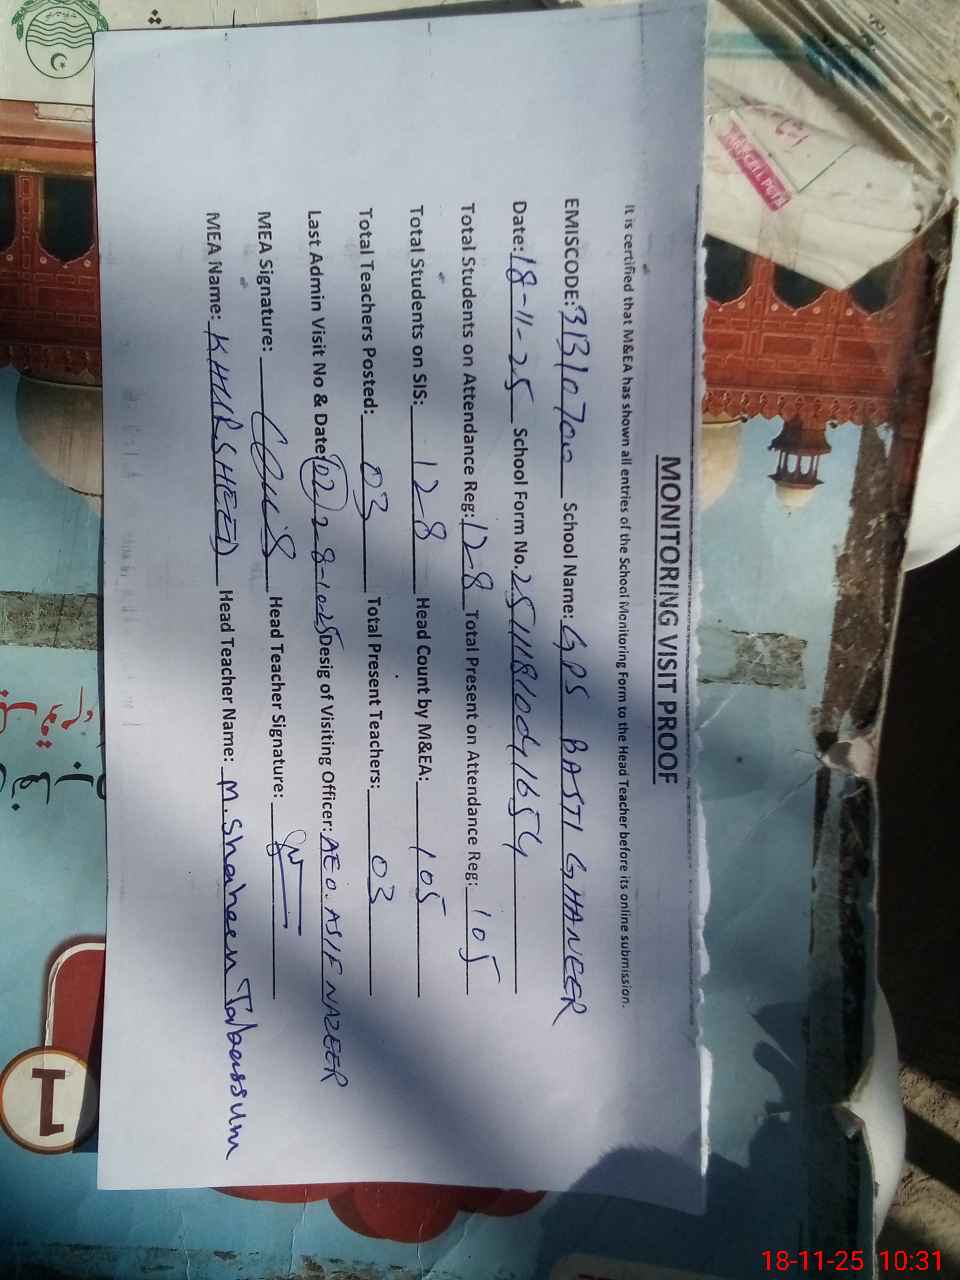 MONITORING VISIT PROOF
It is certified that M&EA has shown all entries of the School Monitoring Form to the Head Teacher before its online submission.
EMISCODE: 31310700 School Name: GPS BASTI GHANEER
Date: 18-11-25 School Form No. 25111810041654
Total Students on Attendance Reg: 128 Total Present on Attendance Reg: 105
Total Students on SIS: 128 Head Count by M&EA: 105
Total Teachers Posted: 03 Total Present Teachers: 03
Last Admin Visit No & Date (02) 28-10-25 Desig of Visiting Officer: AEO. ASIF NAZEER
MEA Signature: Head Teacher Signature:
MEA Name: KHURSHEED Head Teacher Name: M. Shaheen Tabassum
1
18-11-25 10:31